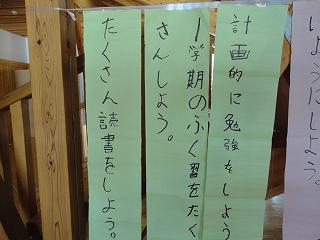 いようにしよう。
計画的に勉強をしよう
1学期のふく習をたく
さんしよう。
たくさん読書をしよう。